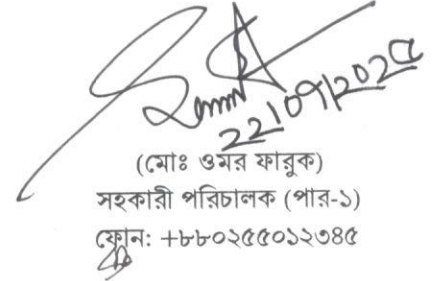 22/09/2025
(মোঃ ওমর ফারুক)
সহকারী পরিচালক (পার-১)
ফোন: +৮৮০২৫৫০১২৩৪৫